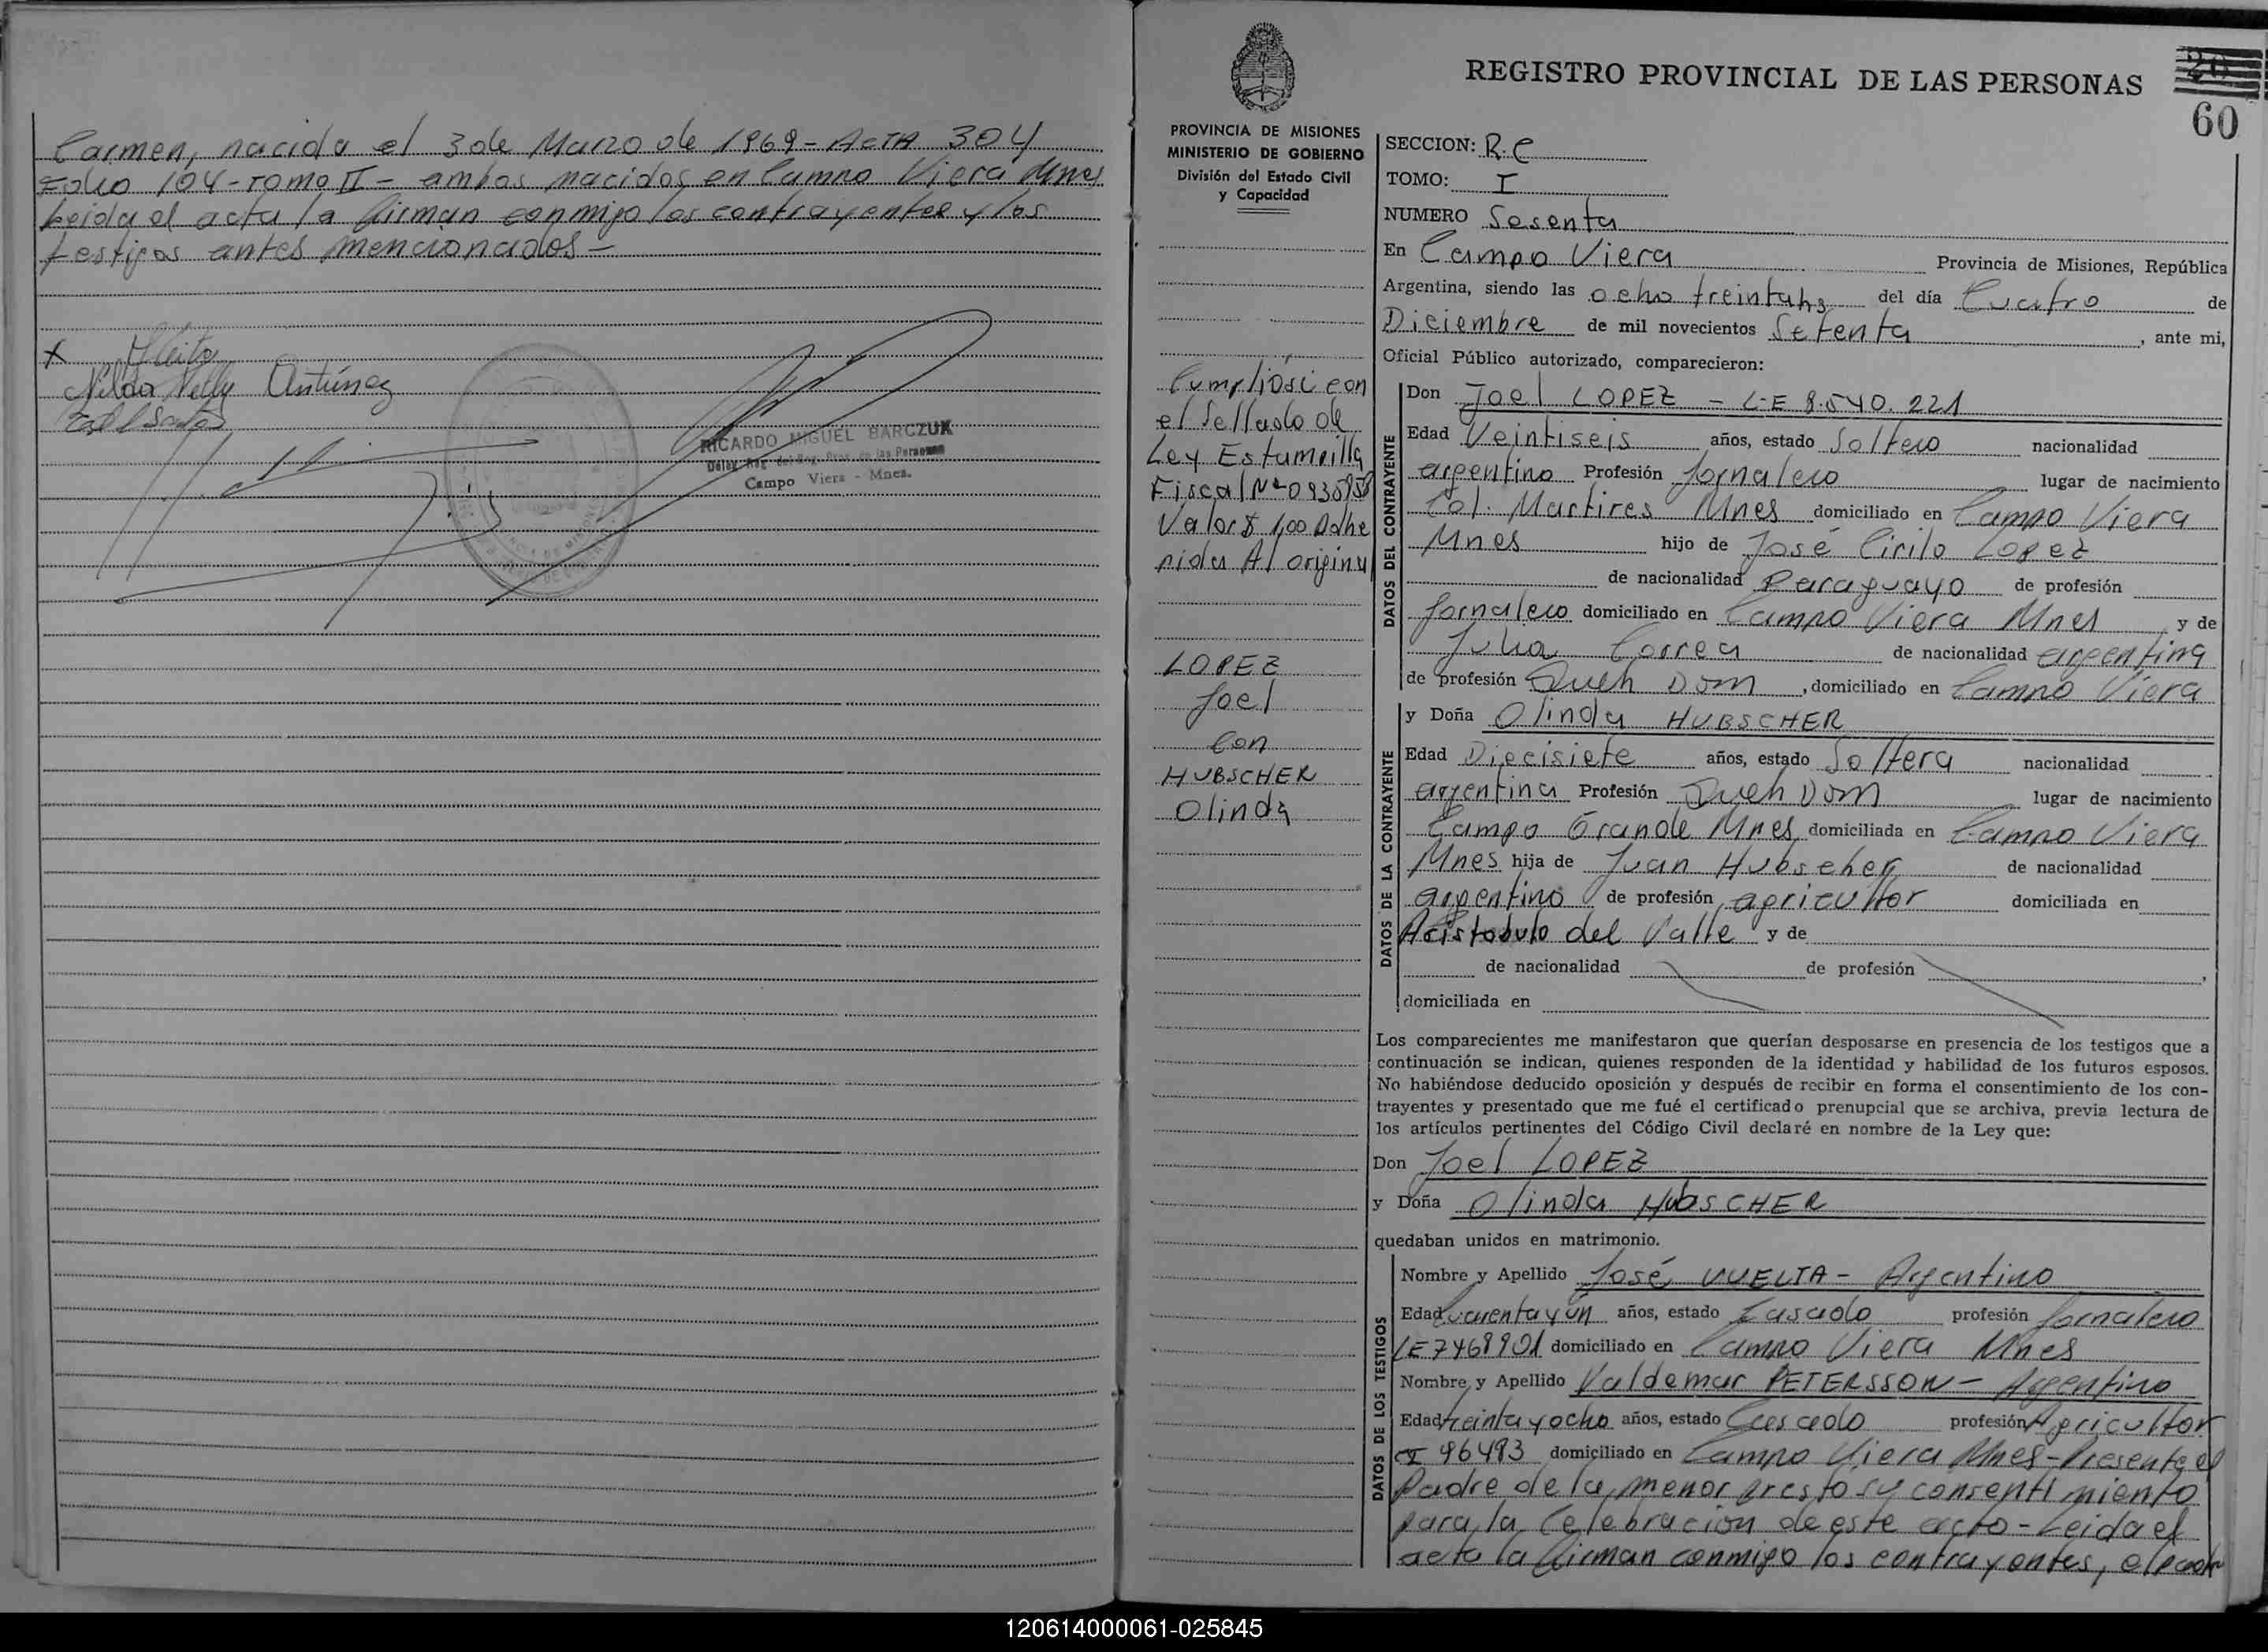 Carmen, nacida el 3 de Marzo de 1969 - ACTA 304
Folio 104 - TOMO II - ambos nacidos en Campo Viera Mnes
Leida el acta la firman conmigo los contrayentes y los
testigos antes mencionados -
Nilda Nelly Antúnez
RICARDO MIGUEL BARCZUK
Campo Viera - Mnes.
REGISTRO PROVINCIAL DE LAS PERSONAS
60
PROVINCIA DE MISIONES
MINISTERIO DE GOBIERNO
División del Estado Civil
y Capacidad
Cumpliósi con
el sellado de
Ley Estampilla
Fiscal Nº
Valor $ 1,00 Adhe
rida Al original
LOPEZ
Joel
Con
HUBSCHER
Olinda
SECCION: R.C
TOMO: I
NUMERO Sesenta
En Campo Viera Provincia de Misiones, República
Argentina, siendo las ocho treinta hs del día Cuatro de
Diciembre de mil novecientos Setenta, ante mi,
Oficial Público autorizado, comparecieron:
DATOS DEL CONTRAYENTE
Don Joel LOPEZ - L-E 8.540.221
Edad Veintiseis años, estado Soltero nacionalidad
argentino Profesión Jornalero lugar de nacimiento
Col. Martires Mnes domiciliado en Campo Viera
Mnes hijo de José Cirilo Lopez
de nacionalidad Paraguayo de profesión
Jornalero domiciliado en Campo Viera Mnes y de
Julia Correa de nacionalidad argentina
de profesión Queh Dom, domiciliado en Campo Viera
DATOS DE LA CONTRAYENTE
y Doña Olinda HUBSCHER
Edad Diecisiete años, estado Soltera nacionalidad
argentina Profesión Queh Dom lugar de nacimiento
Campo Grande Mnes domiciliada en Campo Viera
Mnes hija de Juan Hubscher de nacionalidad
argentino de profesión agricultor domiciliada en
Aristobulo del Valle y de
de nacionalidad de profesión ,
domiciliada en
Los comparecientes me manifestaron que querían desposarse en presencia de los testigos que a
continuación se indican, quienes responden de la identidad y habilidad de los futuros esposos.
No habiéndose deducido oposición y después de recibir en forma el consentimiento de los con-
trayentes y presentado que me fué el certificado prenupcial que se archiva, previa lectura de
los artículos pertinentes del Código Civil declaré en nombre de la Ley que:
Don Joel LOPEZ
y Doña Olinda HUBSCHER
quedaban unidos en matrimonio.
DATOS DE LOS TESTIGOS
Nombre y Apellido José VUELTA - Argentino
Edad cuarenta y un años, estado Casado profesión Jornalero
LE 7468901 domiciliado en Campo Viera Mnes
Nombre y Apellido Valdemar PETERSSON - Argentino
Edad treinta y ocho años, estado Casado profesión Agricultor
CI 96493 domiciliado en Campo Viera Mnes - Presente el
Padre de la menor presto su consentimiento
para la Celebracion de este acto - Leida el
acta la firman conmigo los contrayentes, el padre
120614000061-025845